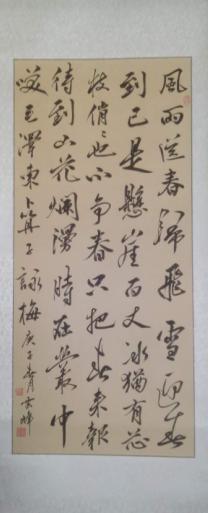 風雨送春歸飛雪迎春
到已是懸崖百丈冰猶有花
枝俏俏也不争春只把春来報
待到山花爛漫時在叢中
笑毛澤東卜算子詠梅庚子